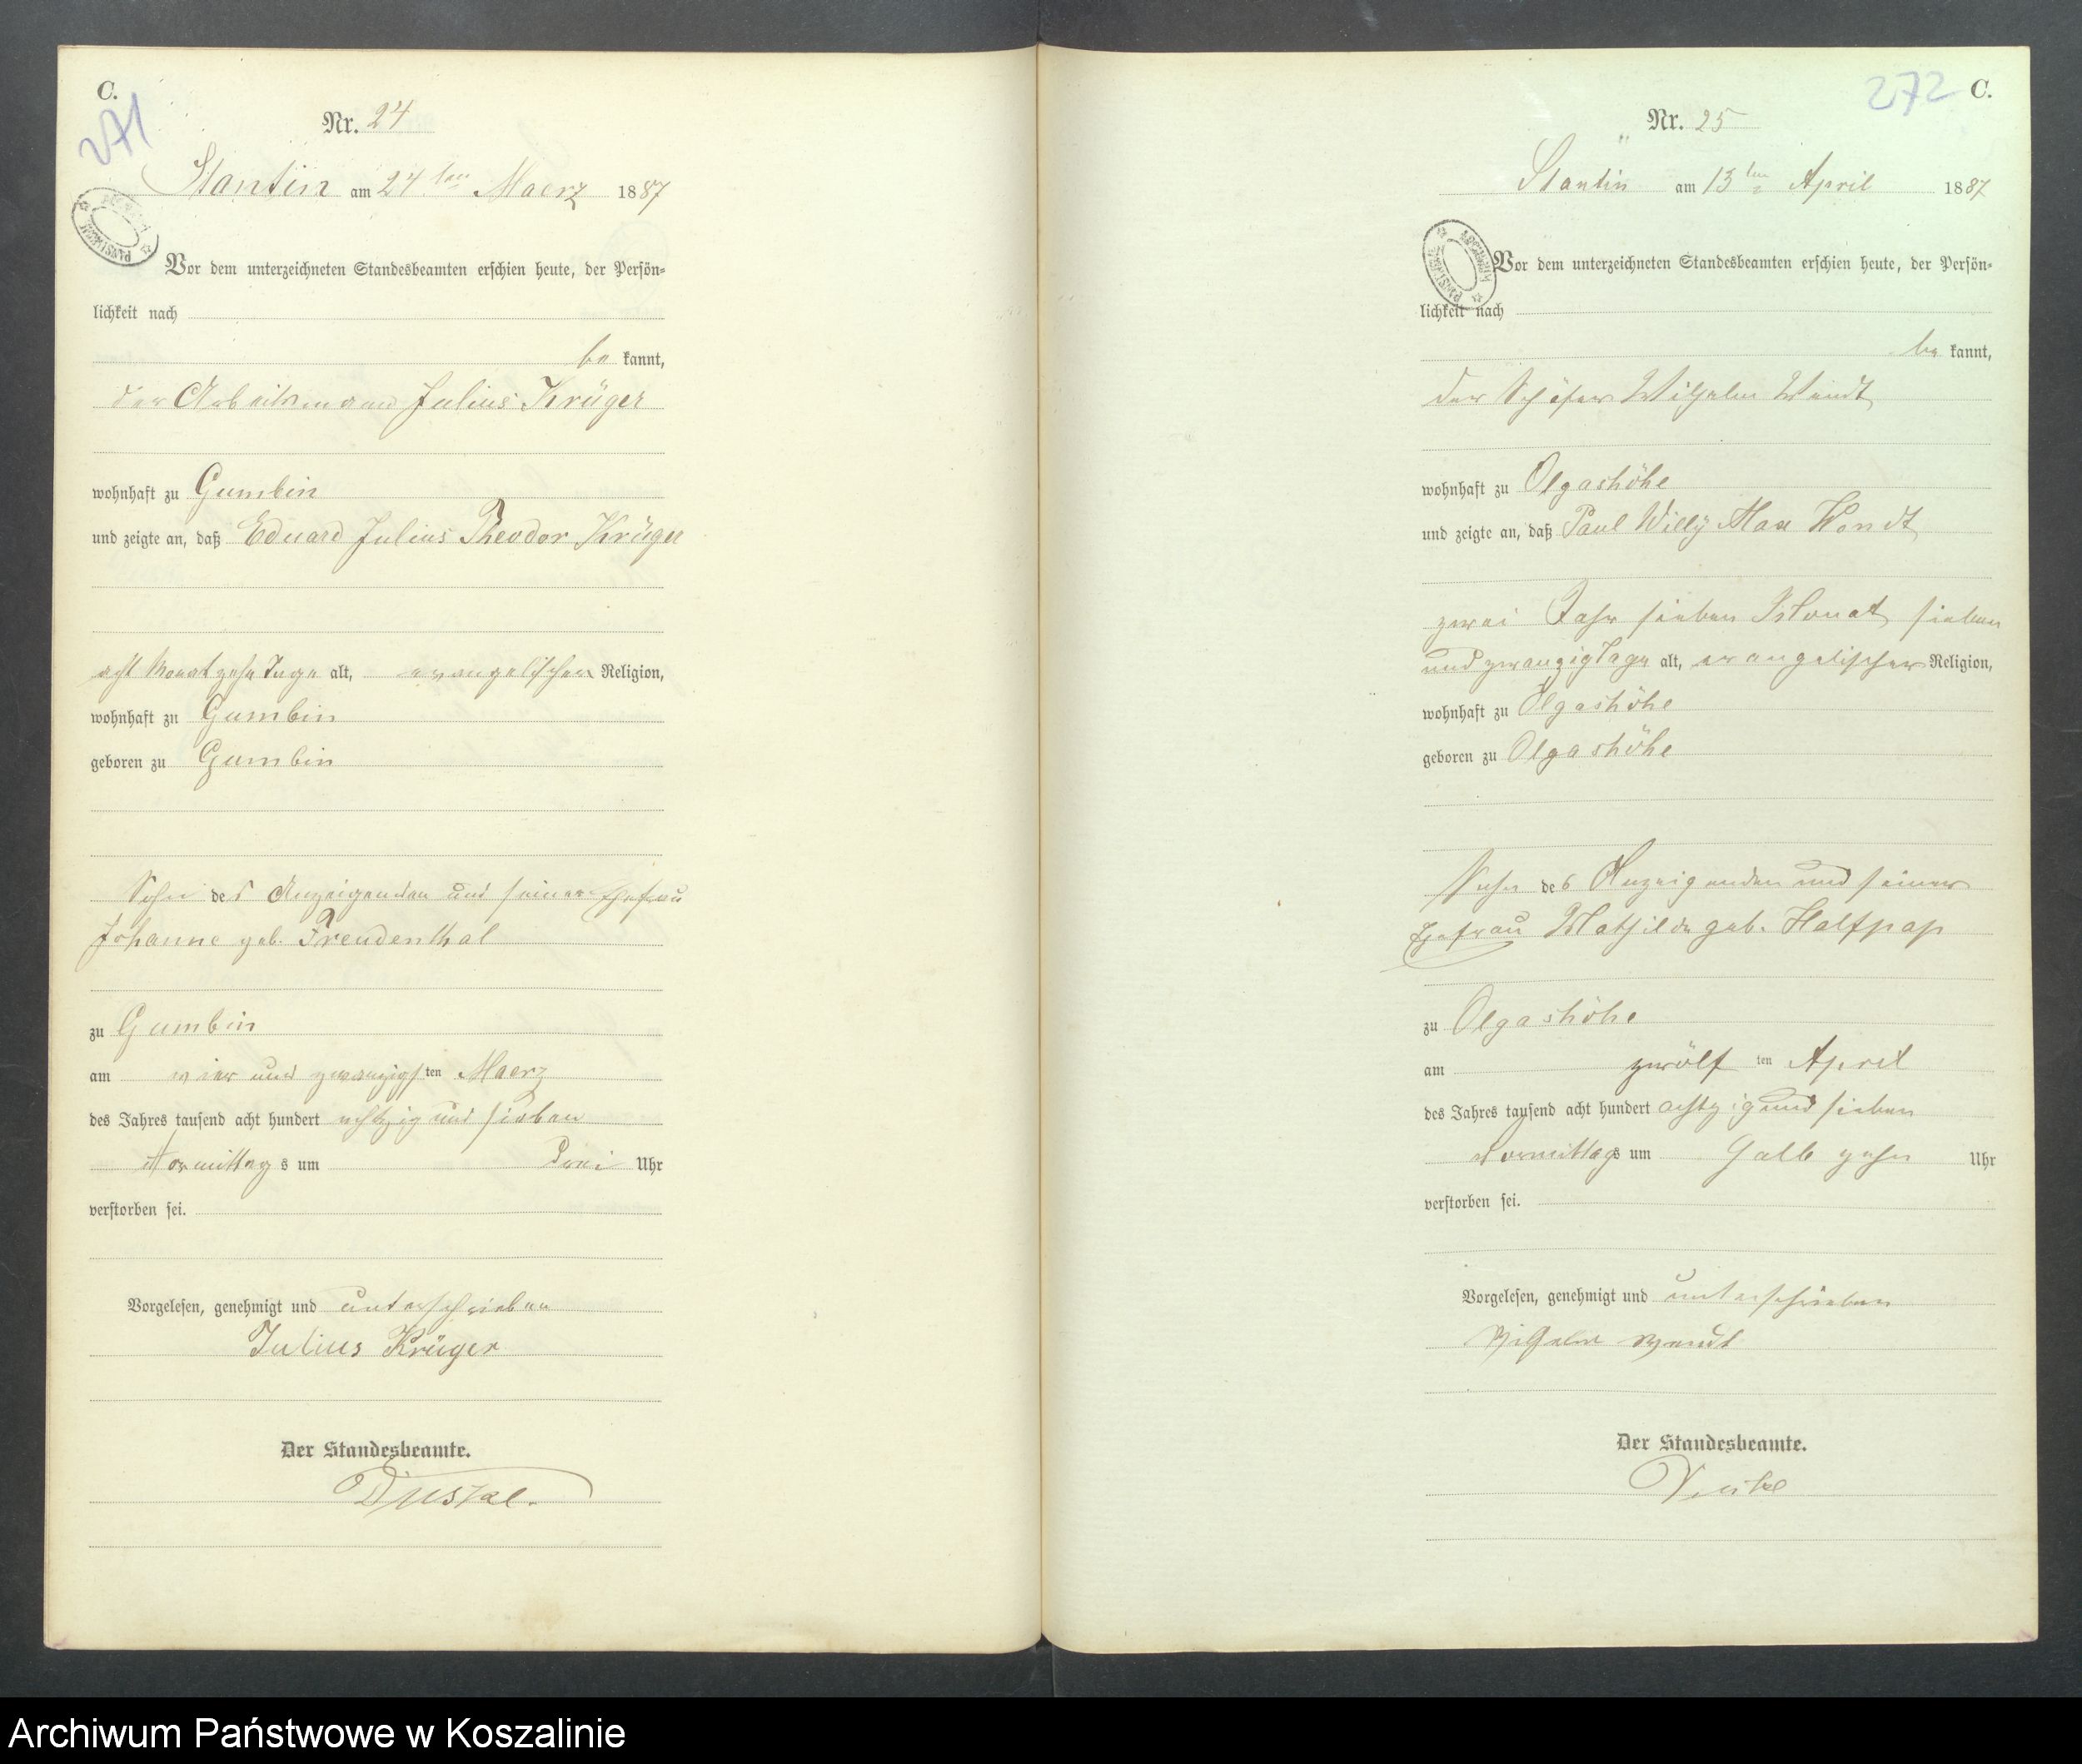 C.
271
Nr. 24
Stantin am 24ten Maerz 1887
Vor dem unterzeichneten Standesbeamten erschien heute, der Persön-
lichkeit nach
be kannt,
der Arbeitsmann Julius Krüger
wohnhaft zu Gumbin
und zeigte an, daß Eduard Julius Theodor Krüger
acht Monat zehn Tage alt, evangelischer Religion,
wohnhaft zu Gumbin
geboren zu Gumbin
Sohn des Anzeigenden und seiner Ehefrau
Johanne geb. Freudenthal
zu Gumbin
am vier und zwanzigsten Maerz
des Jahres tausend acht hundert achtzig und sieben
Vormittags um Uhr
verstorben sei.
Vorgelesen, genehmigt und unterschrieben
Julius Krüger
Der Standesbeamte.
272 C.
Nr. 25
Stantin am 13ten April 1887
Vor dem unterzeichneten Standesbeamten erschien heute, der Persön-
lichkeit nach
be kannt,
der Schäfer Wilhelm Wendt
wohnhaft zu Olgashöhe
und zeigte an, daß Paul Willy Max Wendt
zwei Jahr sieben Monat sieben
und zwanzig Tage alt, evangelischer Religion,
wohnhaft zu Olgashöhe
geboren zu Olgashöhe
Sohn des Anzeigenden und seiner
Ehefrau Mathilde geb. Halfpap
zu Olgashöhe
am zwölf ten April
des Jahres tausend acht hundert achtzig und sieben
Vormittags um halb zehn Uhr
verstorben sei.
Vorgelesen, genehmigt und unterschrieben
Wilhelm Wendt
Der Standesbeamte.
Archiwum Państwowe w Koszalinie